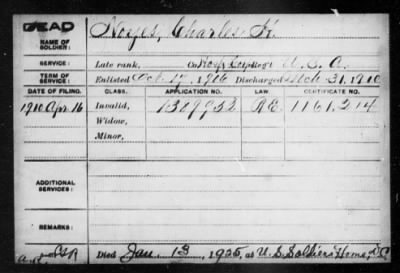 DEAD
NAME OF SOLDIER: Noyes, Charles H.
SERVICE: Late rank, Co. Hosp. Corps Reg't U. S. A.
TERM OF SERVICE: Enlisted Oct. 17, 1906 Discharged Mch. 31, 1910
DATE OF FILING. CLASS. APPLICATION NO. LAW. CERTIFICATE NO.
1910 Apr. 16 Invalid, 1389952 R E. 1161214
Widow,
Minor,
ADDITIONAL SERVICES:
REMARKS:
Died Jan. 13, 1925, at U. S. Soldiers Home, D.C.